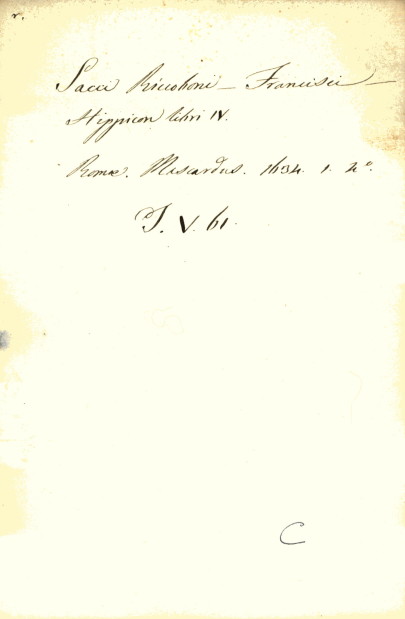 r.
Sacci Riccoboni — Francisci —
Hippicon libri IV.
Romæ. Mascardus. 1634. 1. 4°.
J. V. 61.
C